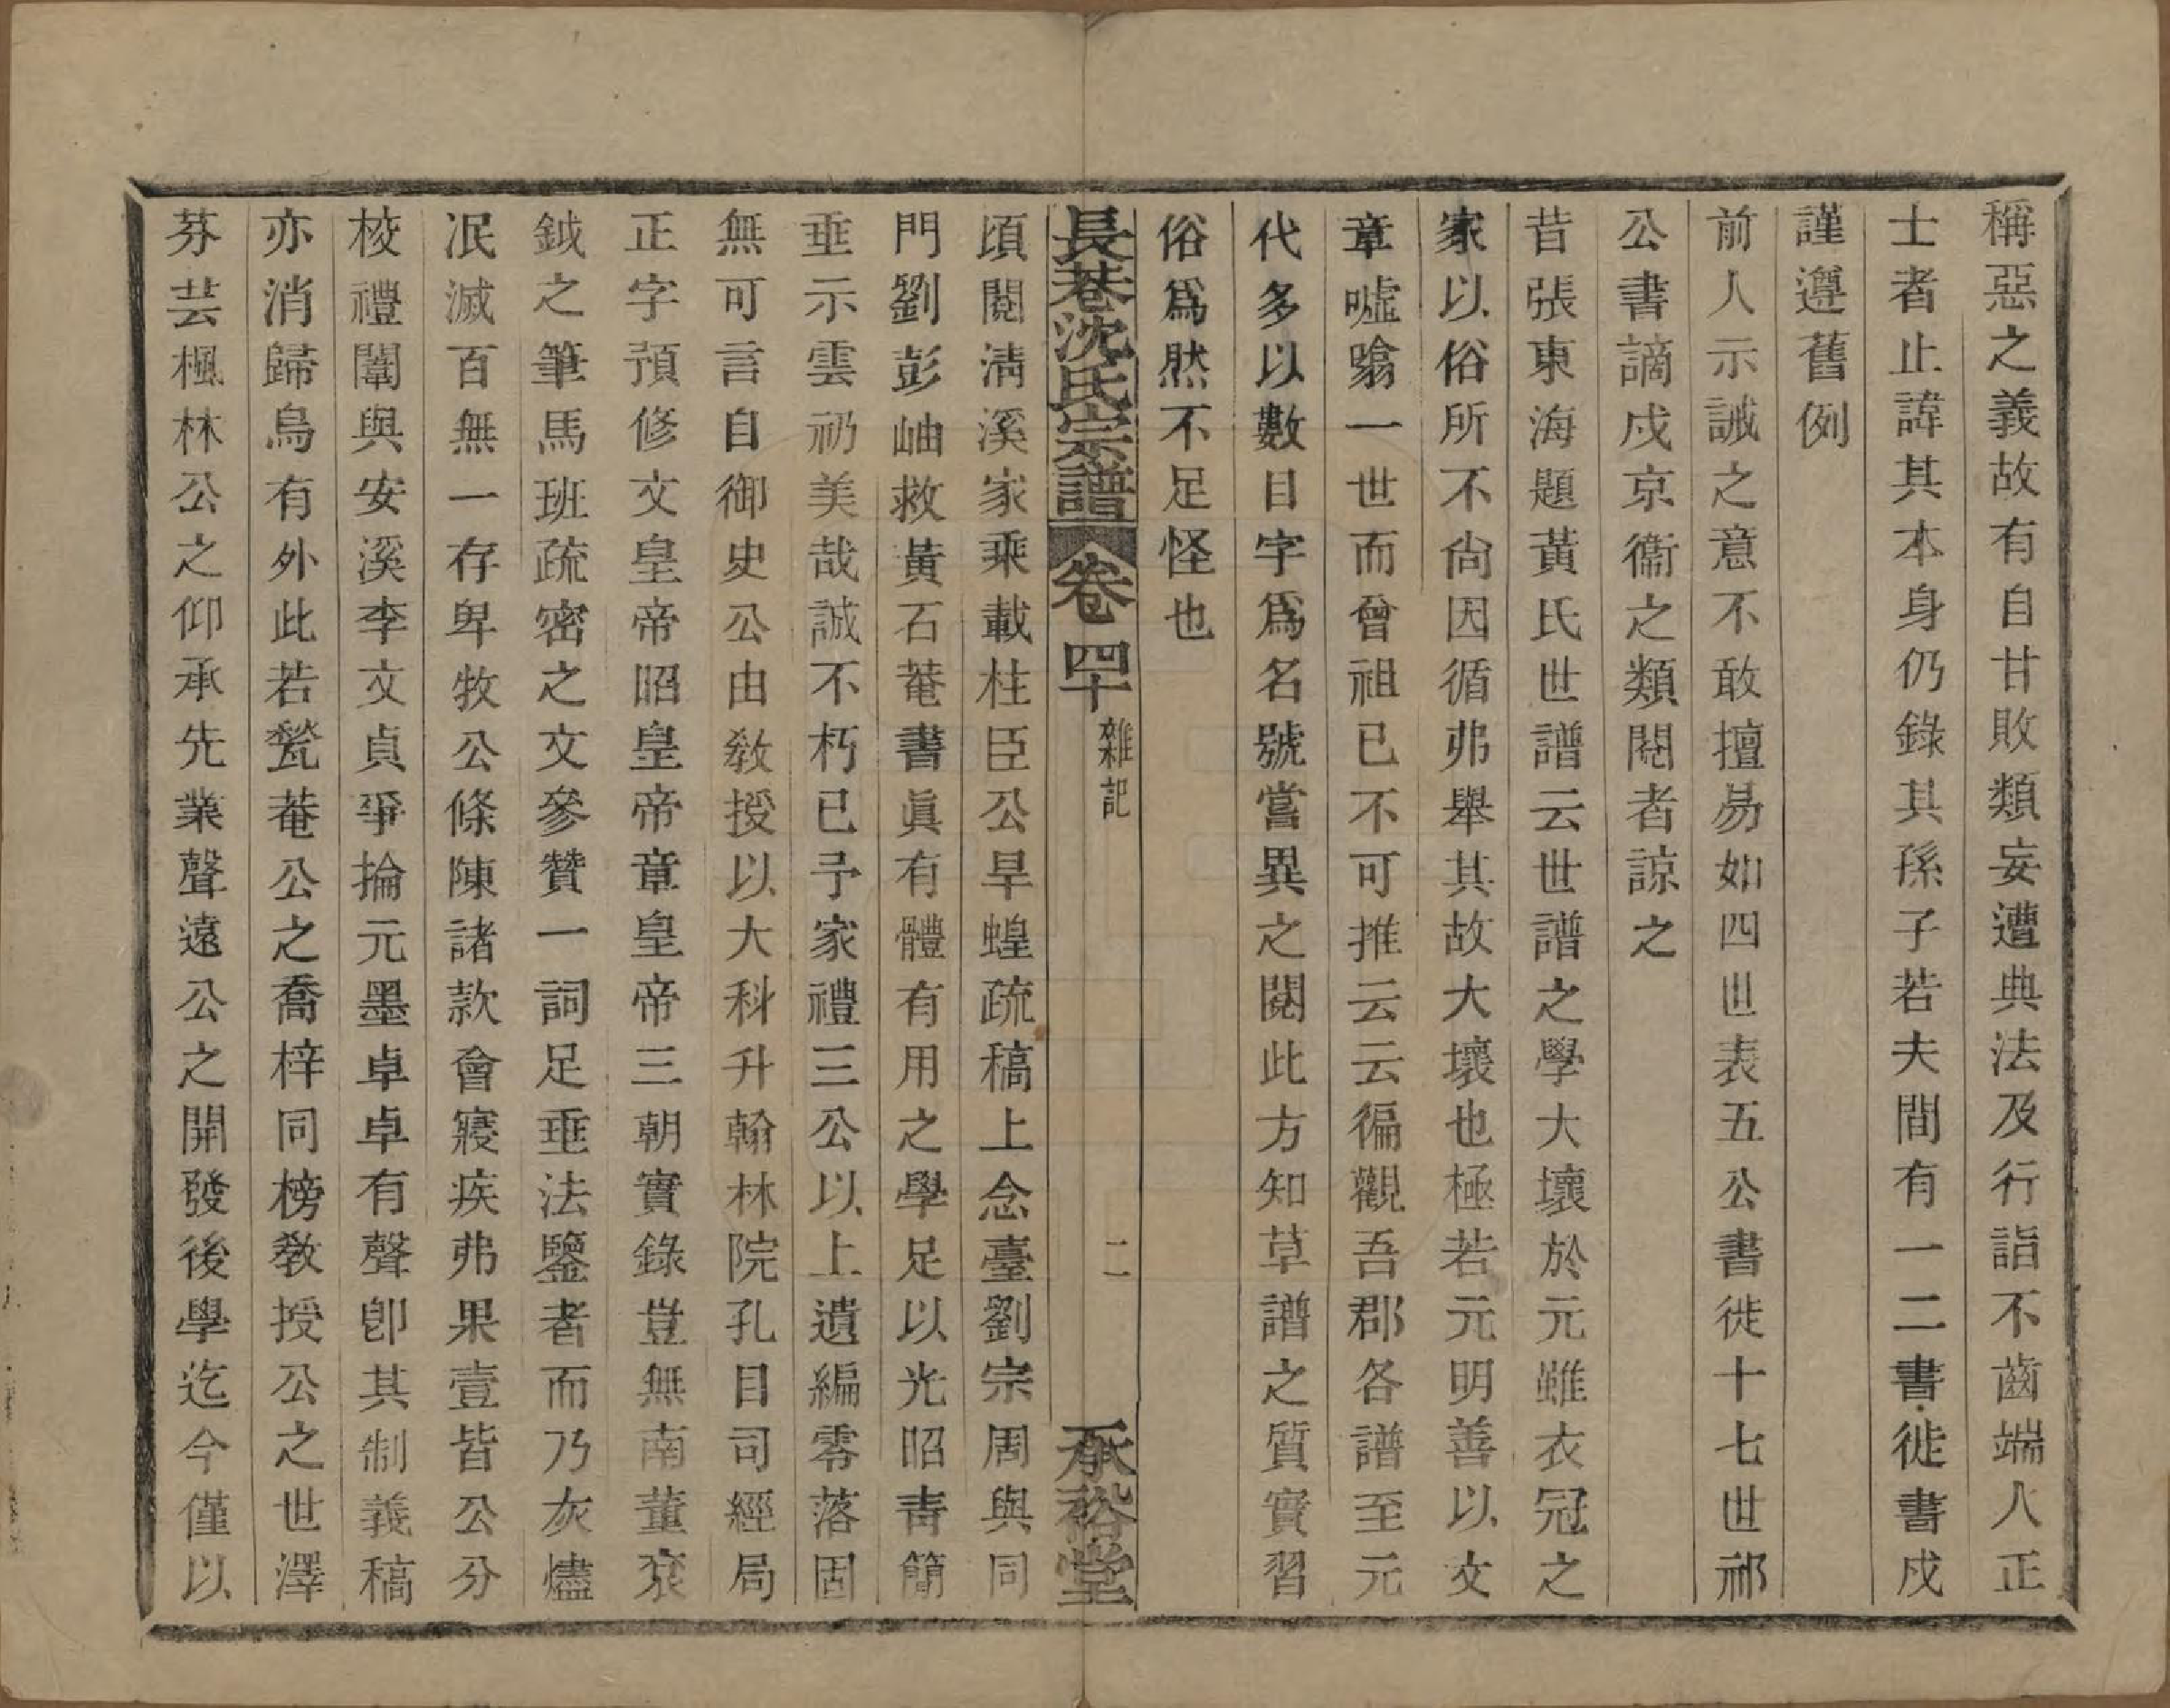 稱惡之義故有自甘敗類妄遭典法及行詣不齒端人正
士者止諱其本身仍錄其孫子若夫間有一二書徙書戍
謹遵舊例
前人示誡之意不敢擅易如四世表五公書徙十七世祁
公書謫戍京衞之類閱者諒之
昔張東海題黃氏世譜云世譜之學大壞於元雖衣冠之
家以俗所不尙因循弗舉其故大壞也極若元明善以文
章噓翕一世而曾祖已不可推云云徧觀吾郡各譜至元
代多以數目字爲名號嘗異之閱此方知草譜之質實習
俗爲然不足怪也
長巷沈氏宗譜 卷四十 雜記 二 承裕堂
頃閱淸溪家乘載柱臣公旱蝗疏稿上念臺劉宗周與同
門劉彭岫救黃石菴書眞有體有用之學足以光昭靑簡
垂示雲礽美哉誠不朽已予家禮三公以上遺編零落固
無可言自御史公由敎授以大科升翰林院孔目司經局
正字預修文皇帝昭皇帝章皇帝三朝實錄豈無南董袞
鉞之筆馬班疏密之文參贊一詞足垂法鑒者而乃灰燼
泯滅百無一存卑牧公條陳諸款會寢疾弗果壹皆公分
校禮闈與安溪李文貞爭掄元墨卓卓有聲卽其制義稿
亦消歸烏有外此若甃菴公之喬梓同榜敎授公之世澤
芬芸楓林公之仰承先業聲遠公之開發後學迄今僅以